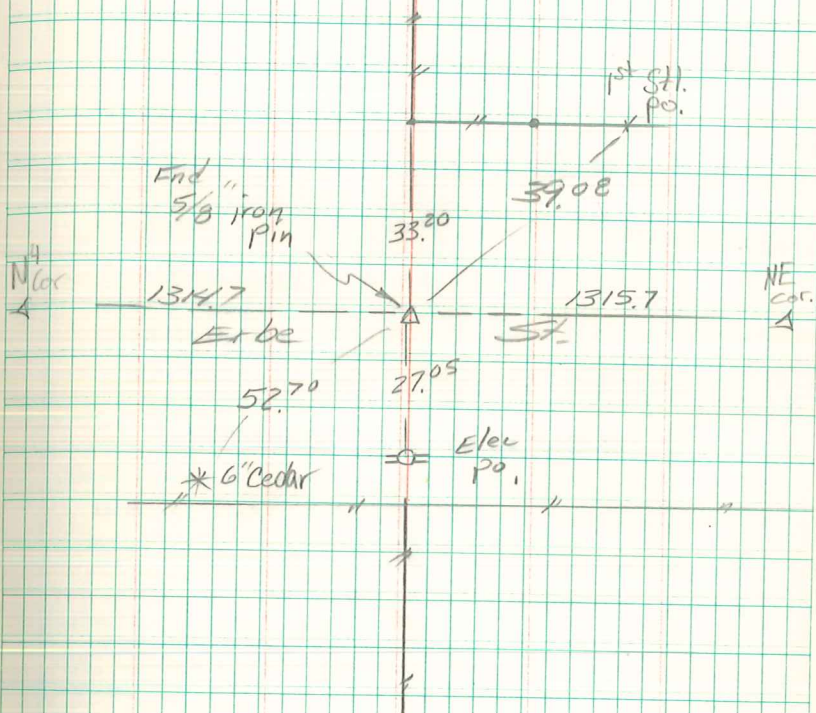 1st Stl.
po.
Fnd
5/8" iron
pin
39.08
33.20
N4
cor
1314.7
1315.7
NE
cor.
Erbe
St.
27.05
52.70
Elec
po.
6" Cedar